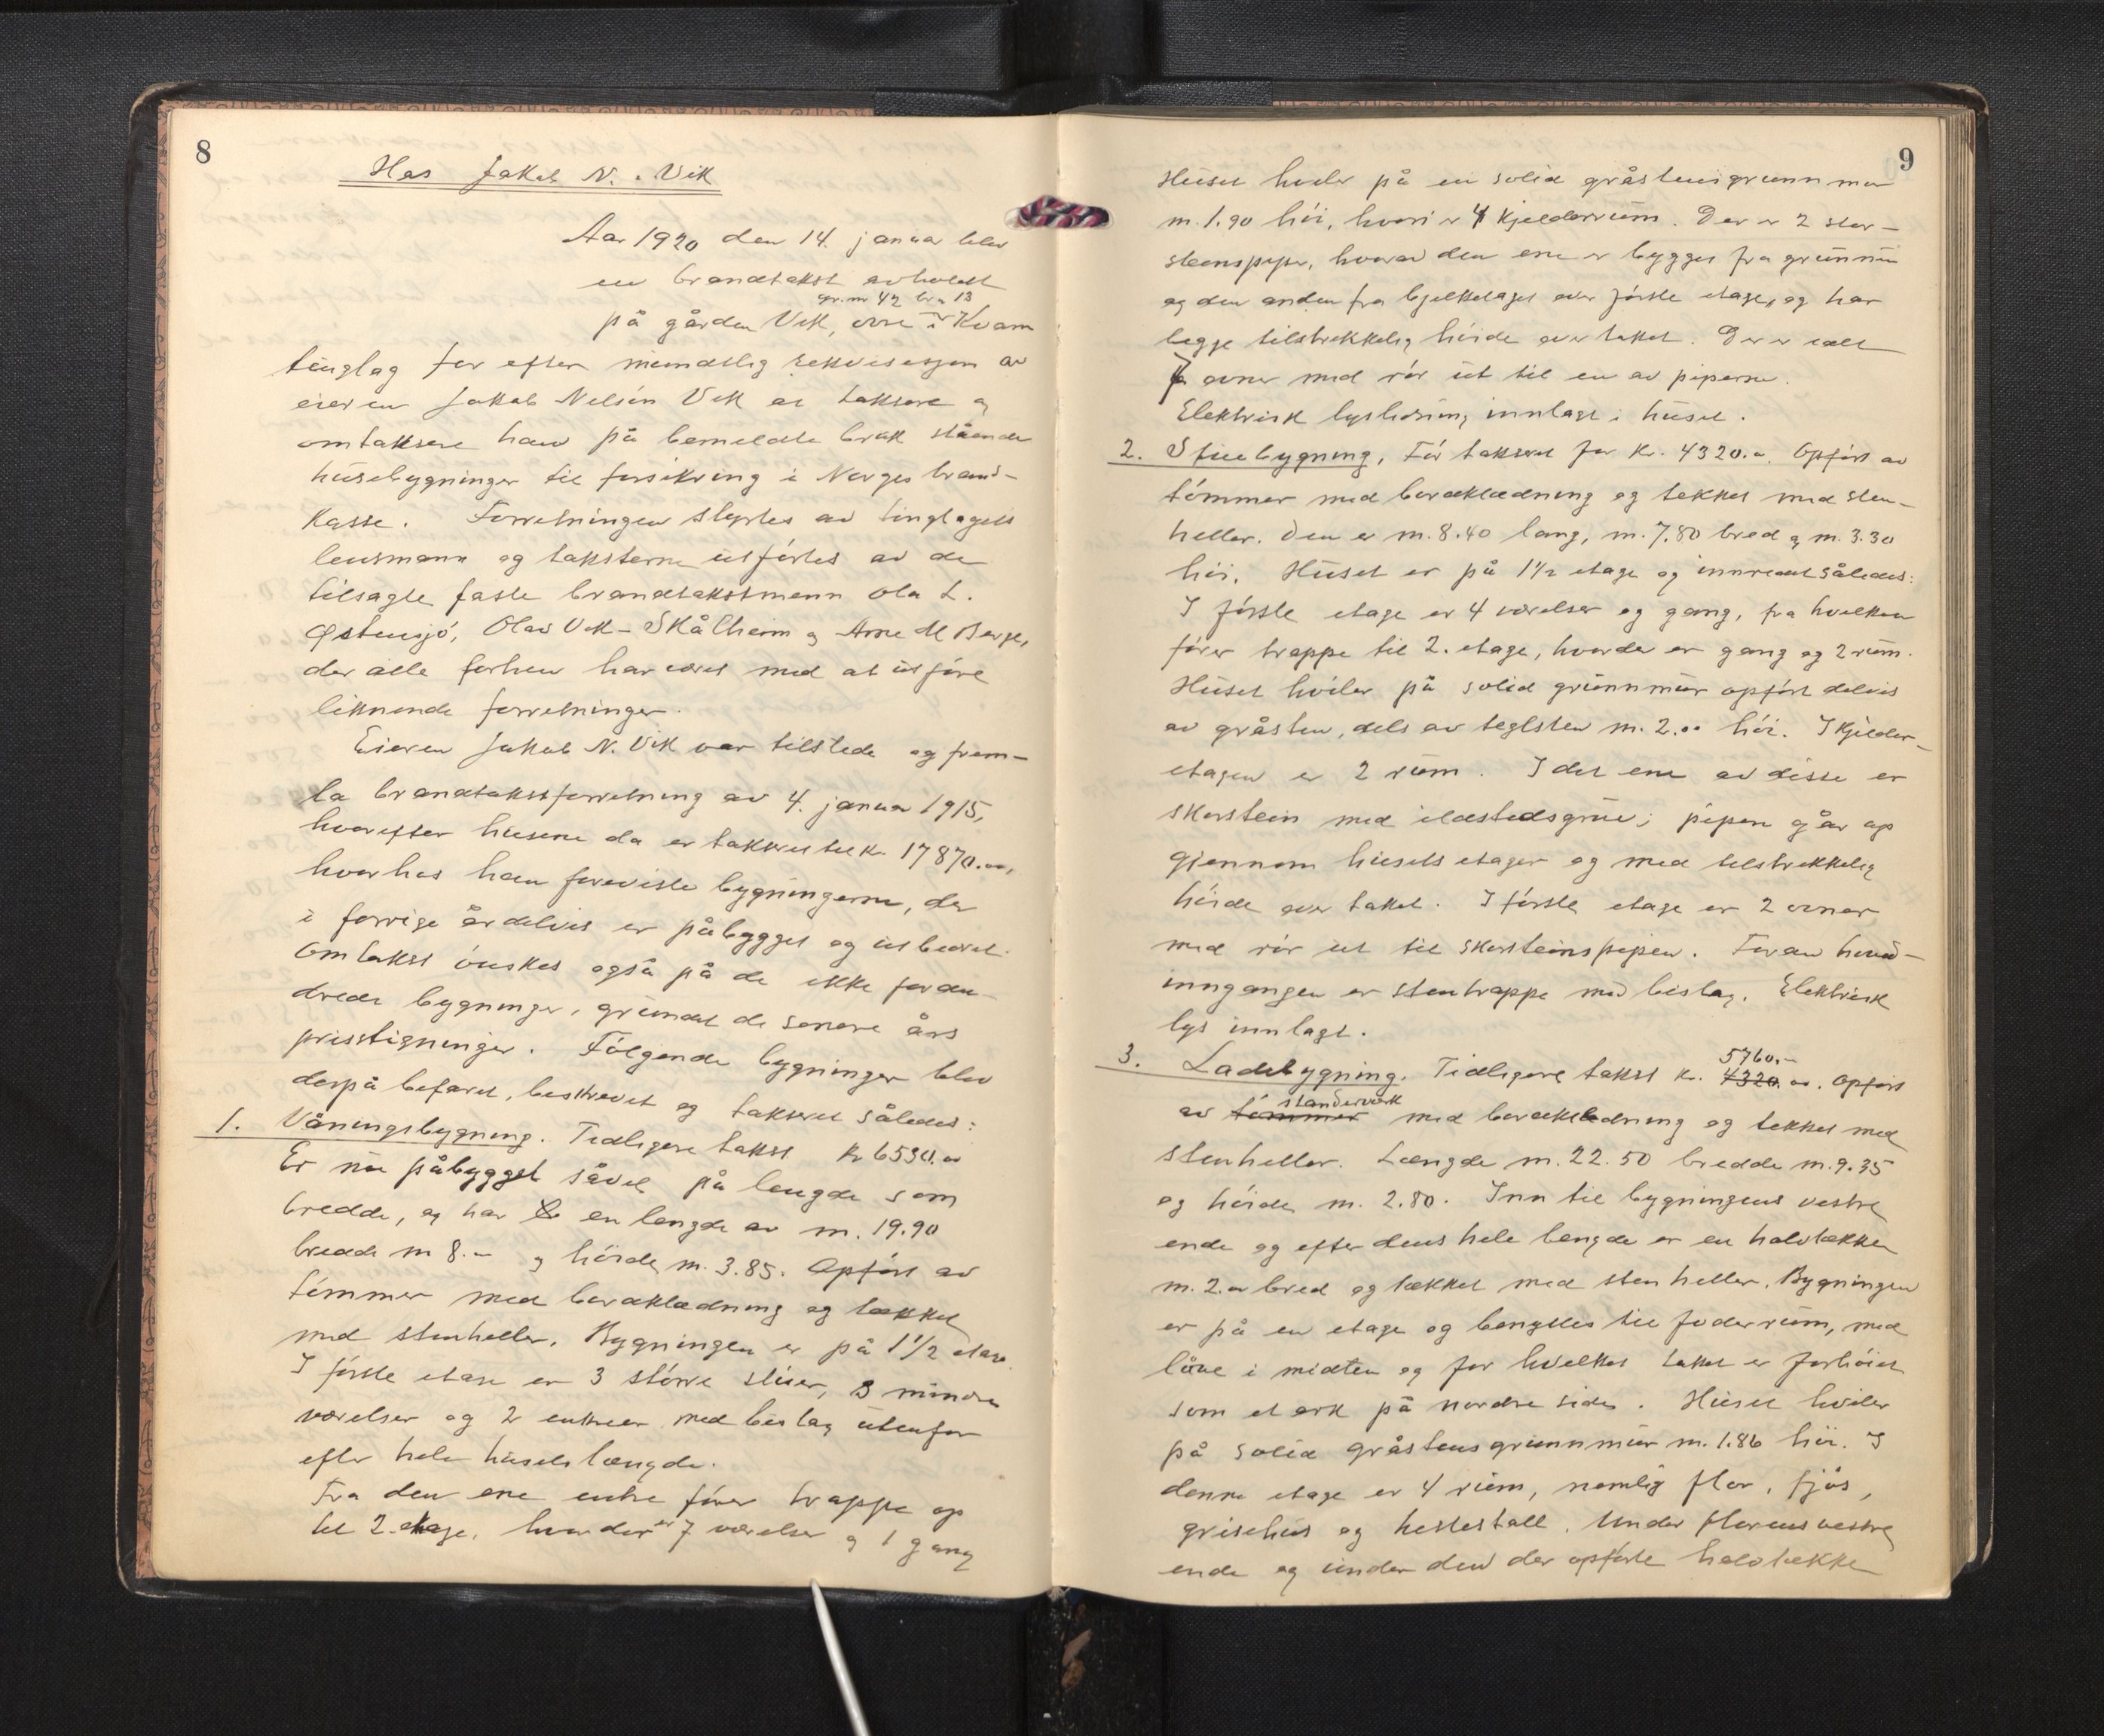 8
Hos Jakob N. Vik
Aar 1920 den 14. januar blev
en brandtakst avholdt
gr.nr 42 br.n 13
på gården Vik, øvre i Kvam
tinglag for efter mundtlig rekvisisjon av
eieren Jakob Nelson Vik at taksere og
omtaksere hans på bemeldte bruk stående
husebygninger til forsikring i Norges brand-
kasse. Forretningen styrtes av tinglagets
lensmann og taksterne utførtes av de
tilsagte faste brandtakstmenn Ola L.
Østensjø, Olav Vik-Skålheim og Arne M Berge,
der alle forhen har været med at utføre
liknende forretninger.
Eieren Jakob N. Vik var tilstede og frem-
la brandtakstforretning av 4. januar 1915,
hvorefter husene da er taksert til kr. 17870.00,
hvorhos han foreviste bygningerne, der
i forrige år delvis er påbygget og utbedret.
Omtakst ønskes også på de ikke foran-
drede bygninger, grundet de senere års
prisstigninger. Følgende bygninger blev
derpå befaret, beskrevet og taksert således:
1. Våningsbygning. Tidligere takst kr 6530.00
Er nu påbygget såvel på lengde som
bredde, og har en lengde av m. 19.90
bredde m 8.- og høide m. 3.85. Opført av
tømmer med bordklædning og tækket
med stenheller. Bygningen er på 1 1/2 etage.
I første etage er 3 større stuer, 3 mindre
værelser og 2 entreer med bislag utenfor
efter hele husets længde.
Fra den ene entre fører trappe op
til 2. etage, hvor der er 7 værelser og 1 gang
9
Huset hviler på en solid gråstensgrunnmur
m. 1.90 høi, hvori er 4 kjelderrum. Der er 2 skor-
stenspiper, hvorav den ene er bygget fra grunnen
og den anden fra bjelkelaget over første etage, og har
begge tilstrekkelig høide over taket. Der er ialt
7 ovner med rør ut til en av piperne.
Elektrisk lysledning innlagt i huset.
2. Stuebygning. Før taksert for kr. 4320.00. Opført av
tømmer med bordklædning og tekket med sten-
heller. Den er m. 8.40 lang, m. 7.80 bred og m. 3.30
høi. Huset er på 1 1/2 etage og innredet således:
I første etage er 4 værelser og gang, fra hvilken
fører trappe til 2. etage, hvorder er gang og 2 rum.
Huset hviler på solid grunnmur opført delvis
av gråsten, dels av teglsten m. 2.00 høi. I kjelder-
etagen er 2 rum. I det ene av disse er
skorstein med ildstedsgrue; pipen går op
gjennom husets etager og med tilstrekkelig
høide over taket. I første etage er 2 ovner
med rør ut til skorsteinspipen. Foran hoved-
inngangen er stentrappe med bislag. Elektrisk
lys innlagt.
5760.-
3. Ladebygning. Tidligere takst kr. 4320.00. Opført
standerverk
av tømmer med bordklædning og tekket med
stenheller. Længde m. 22.50 bredde m. 9.35
og høide m. 2.80. Inn til bygningens vestre
ende og efter dens hele lengde er en halvtække
m. 2.00 bred og tækket med stenheller. Bygningen
er på en etage og benyttes til foderrum, med
låve i midten og for hvilket taket er forhøiet
som et ark på nordre side. Huset hviler
på solid gråstensgrunnmur m. 1.86 høi. I
denne etage er 4 rum, nemlig flor, fjøs,
grisehus og hestestall. Under florens vestre
ende og under den der opførte halvtække